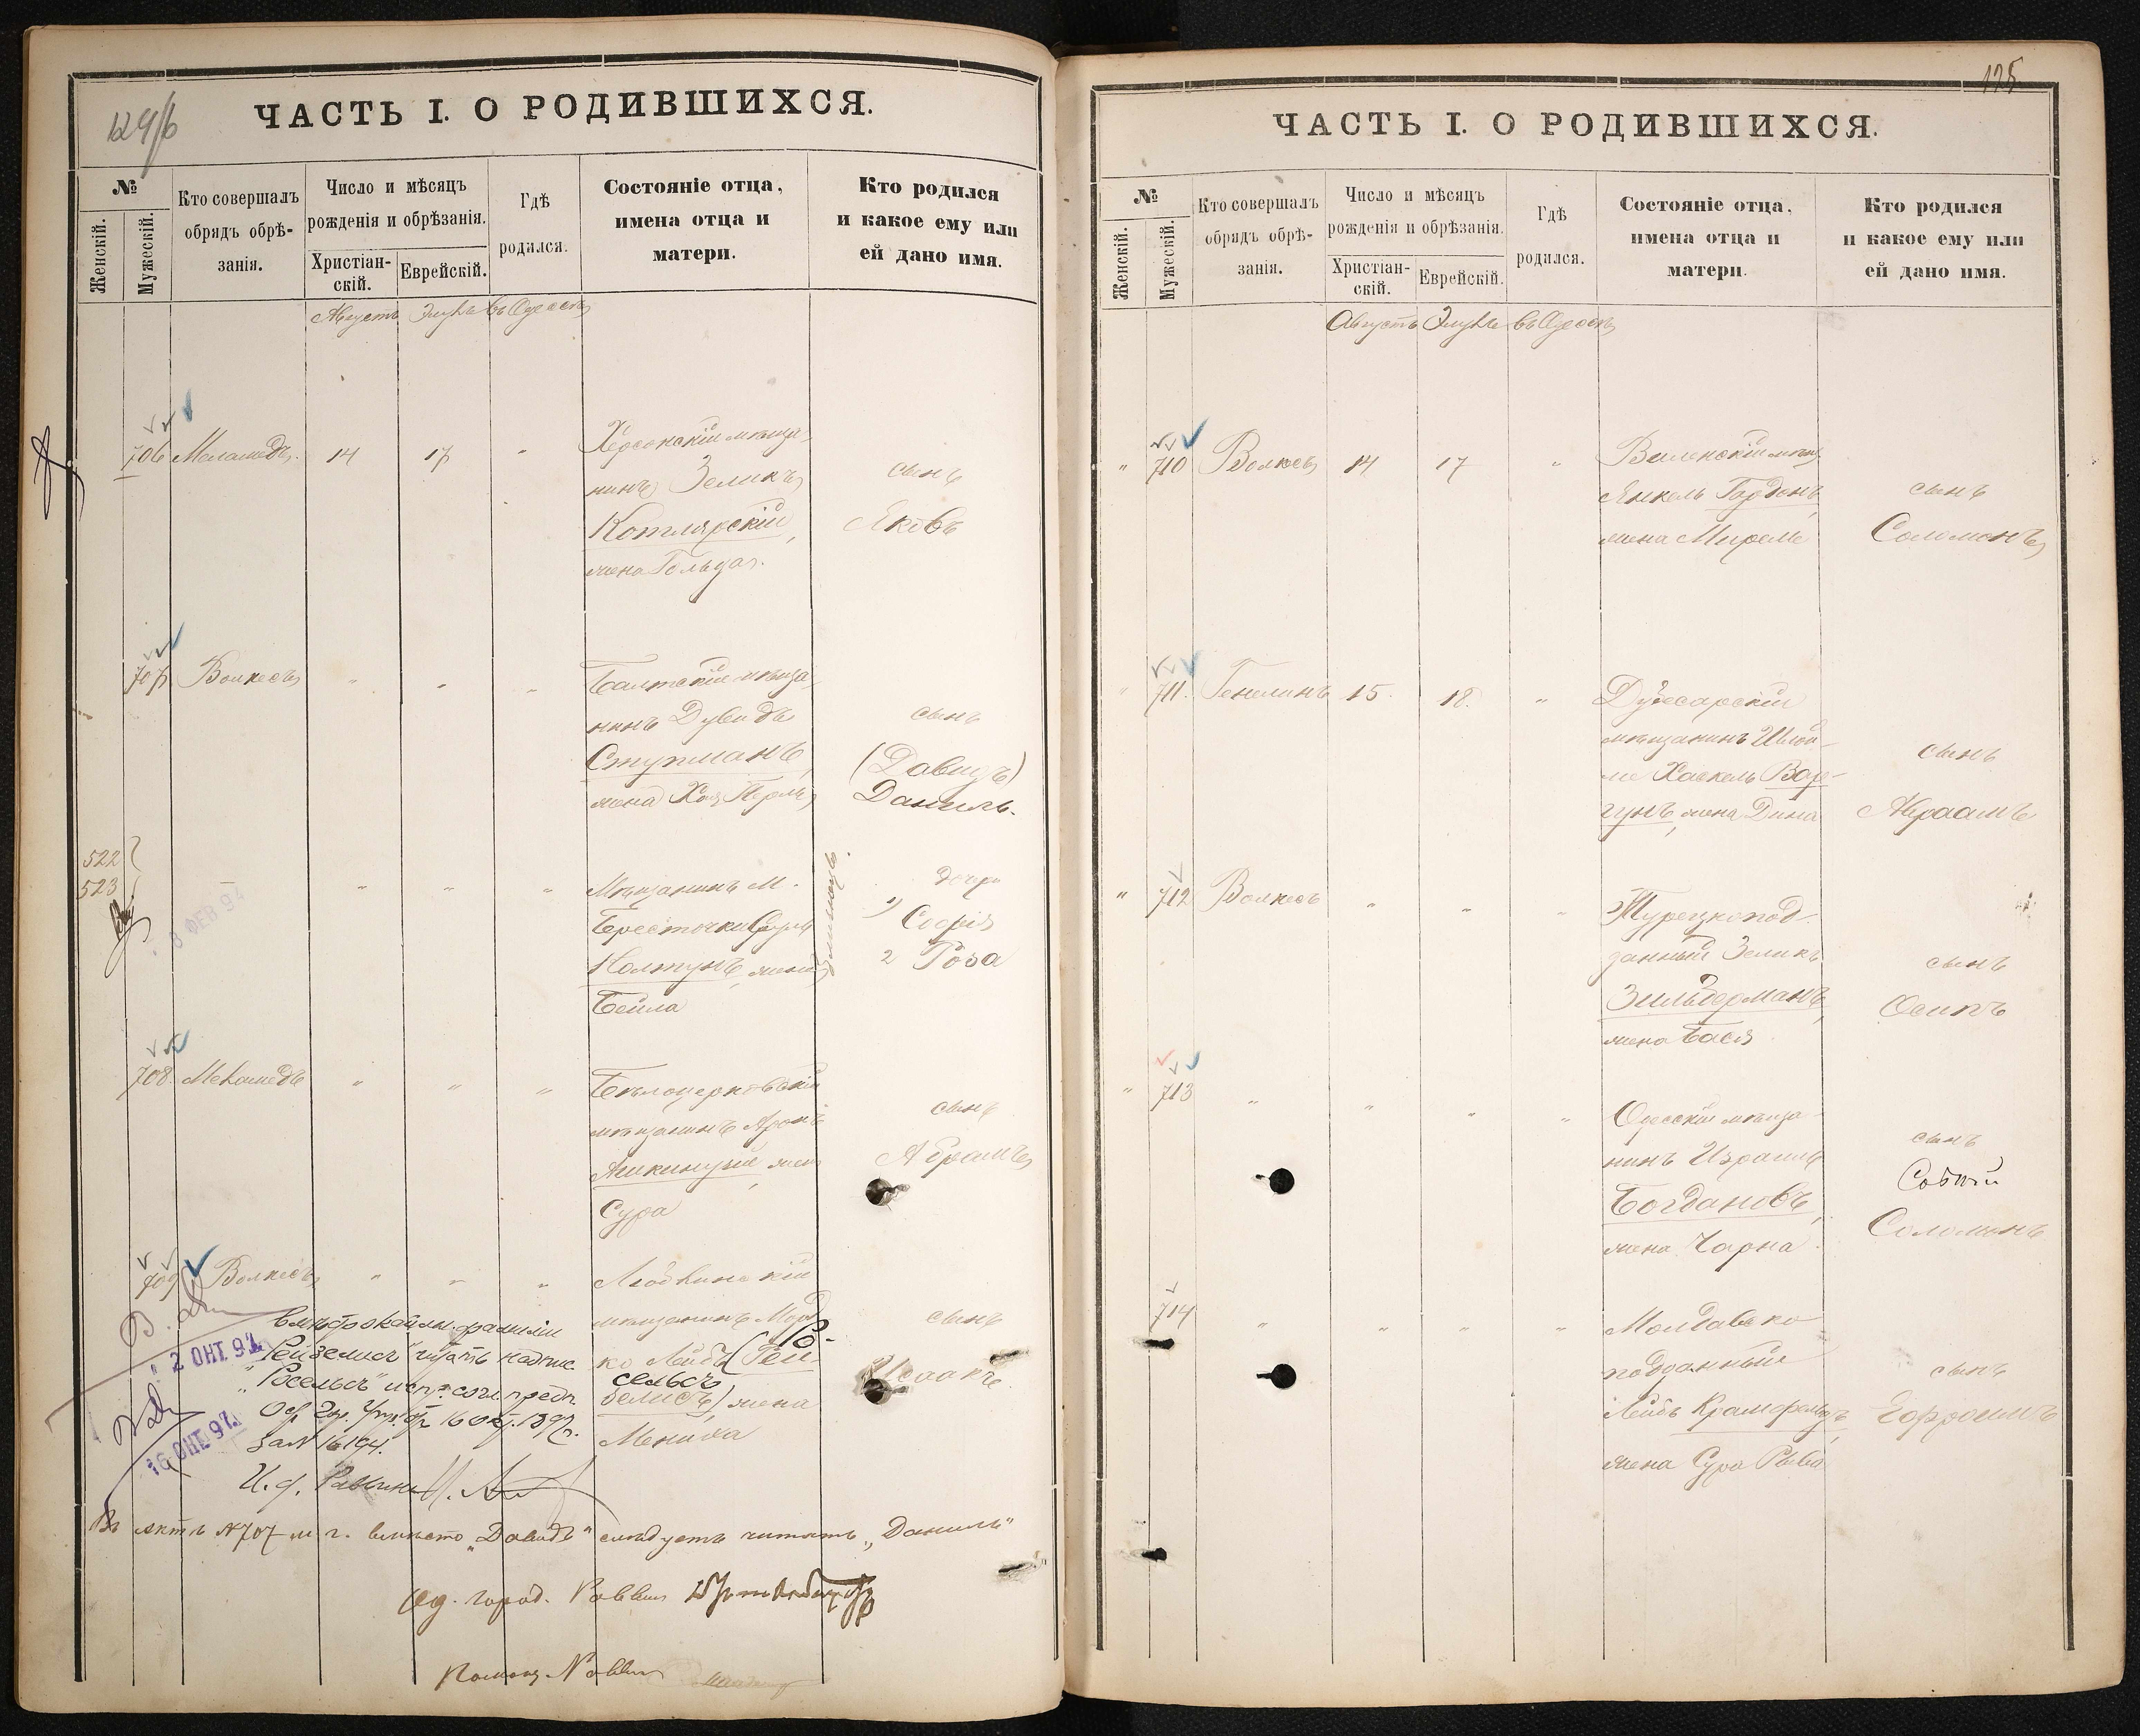 ЧАСТЬ I. О РОДИВШИХСЯ.
№
Женскій.
Мужескій.
Кто совершалъ
обрядъ обрѣ-
занія.
Число и мѣсяцъ
рожденія и обрѣзанія.
Христіан-
скій.
Еврейскій.
Гдѣ
родился.
Состояніе отца,
имена отца и
матери.
Кто родился
и какое ему или
ей дано имя.
Августъ Элулъ въ Одессѣ
706 Меламедъ 14 17 "
Херсонскій мѣща-
нинъ Зеликъ
Котлярскій,
жена Гольда.
сынъ
Яковъ
707 Волкесъ " " "
Балтскій мѣща-
нинъ Дувидъ
Стурманъ,
жена Хая Перля
сынъ
(Давидъ)
Данiилъ.
522
523
— " " "
8 ФЕВ 94
Мѣщанинъ м.
Берестечки
Колтунъ, жена
Бейла
дочери
1) Софія
2 Роза
708 Меламедъ " " "
Бѣлоцерковскій
мѣщанинъ Аронъ
жена
Сура
сынъ
Абрамъ
709 Волкесъ " " "
мѣщанинъ Морд-
ко Лейбъ (Гей-
Ро-
сельсъ
зелисъ) жена
Мениха
сынъ
Исаакъ
вмѣсто фамиліи
"Гейзелисъ" читать
"Росельсъ"
16 Окт. 1897 г.
за № 16194.
2 ОКТ 97
16 ОКТ 97
И. д. Раввина
Въ актѣ № 707 м. г. вмѣсто „Давидъ" слѣдуетъ читать „Данiилъ"
Од. город. Раввин
Помощ. Раввин
125
ЧАСТЬ I. О РОДИВШИХСЯ.
№
Женскій.
Мужескій.
Кто совершалъ
обрядъ обрѣ-
занія.
Число и мѣсяцъ
рожденія и обрѣзанія.
Христіан-
скій.
Еврейскій.
Гдѣ
родился.
Состояніе отца,
имена отца и
матери.
Кто родился
и какое ему или
ей дано имя.
Августъ Элулъ въ Одессѣ
" 710 Волкесъ 14 17 "
Виленскій мѣщ.
Янкель Гордонъ,
жена Миреле
сынъ
Соломонъ
" 711. Генелинъ 15. 18. "
Дубесарскій
мѣщанинъ Шлой-
ме Хаскель Вар-
гунъ, жена Дина
сынъ
Абраамъ
" 712 Волкесъ " " "
Турецкопод-
данный Зеликъ
Зильберманъ,
жена Бася
сынъ
Осипъ
" 713 " " " "
Одесскій мѣща-
нинъ Израиль
Богдановъ,
жена Чарна
сынъ
Соломонъ
714 " " " "
Молдавско-
подданный
Лейбъ Крамфельдъ,
жена Сура Рива
сынъ
Эфроимъ